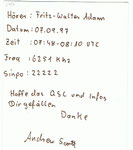 Hörer: Fritz-Walter Adam
Datum: 07.09.97
Zeit : 07:48-08:10 UTC
Freq : 6281 KHz
Sinpo: 22222
Hoffe das QSL und Infos
Dir gefallen
Danke
Andrew